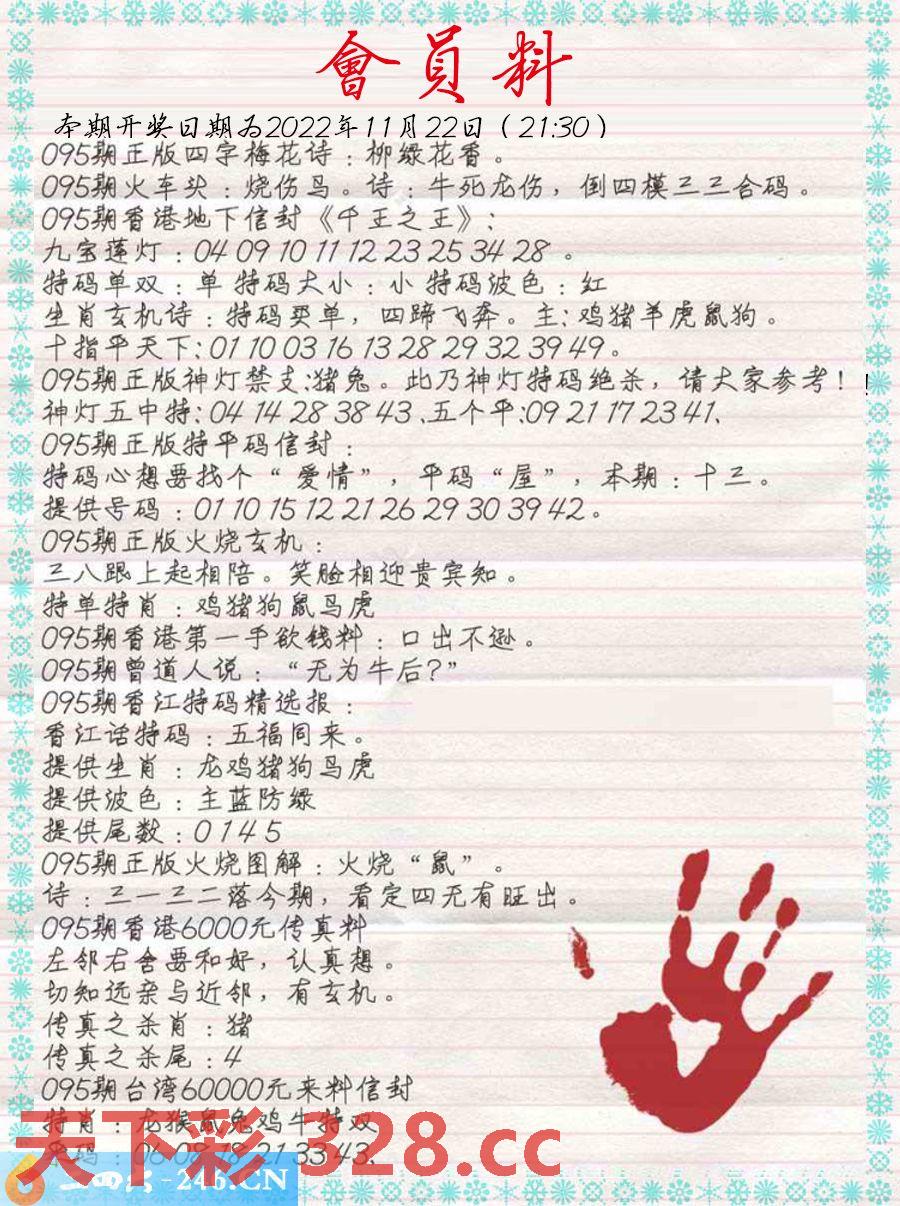 會員料
本期开奖日期为2022年11月22日（21:30）
095期正版四字梅花诗：柳绿花香。
095期火车头：烧伤鸟。诗：牛死龙伤，倒四模三三合码。
095期香港地下信封《千王之王》：
九宝莲灯：04 09 10 11 12 23 25 34 28 。
特码单双：单 特码大小：小 特码波色：红
生肖玄机诗：特码买单，四蹄飞奔。主：鸡猪羊虎鼠狗。
十指平天下：01 10 03 16 13 28 29 32 39 49。
095期正版神灯禁支：猪兔。此乃神灯特码绝杀，请大家参考！！
神灯五中特：04 14 28 38 43、五个平：09 21 17 23 41、
095期正版特平码信封：
特码心想要找个“爱情”，平码“屋”，本期：十三。
提供号码：01 10 15 12 21 26 29 30 39 42。
095期正版火烧玄机：
三八跟上起相陪。笑脸相迎贵宾知。
特单特肖：鸡猪狗鼠马虎
095期香港第一手欲钱料：口出不逊。
095期曾道人说：“无为牛后？”
095期香江特码精选报：
香江话特码：五福同来。
提供生肖：龙鸡猪狗马虎
提供波色：主蓝防绿
提供尾数：0 1 4 5
095期正版火烧图解：火烧“鼠”。
诗：三一三二落今期，看定四无有旺出。
095期香港6000元传真料
左邻右舍要和好，认真想。
切知远亲与近邻，有玄机。
传真之杀肖：猪
传真之杀尾：4
095期台湾60000元来料信封
特肖：龙猴鼠兔鸡牛特双
平码：06 09 18 21 33 43、
天下彩 328.cc
-246.CN